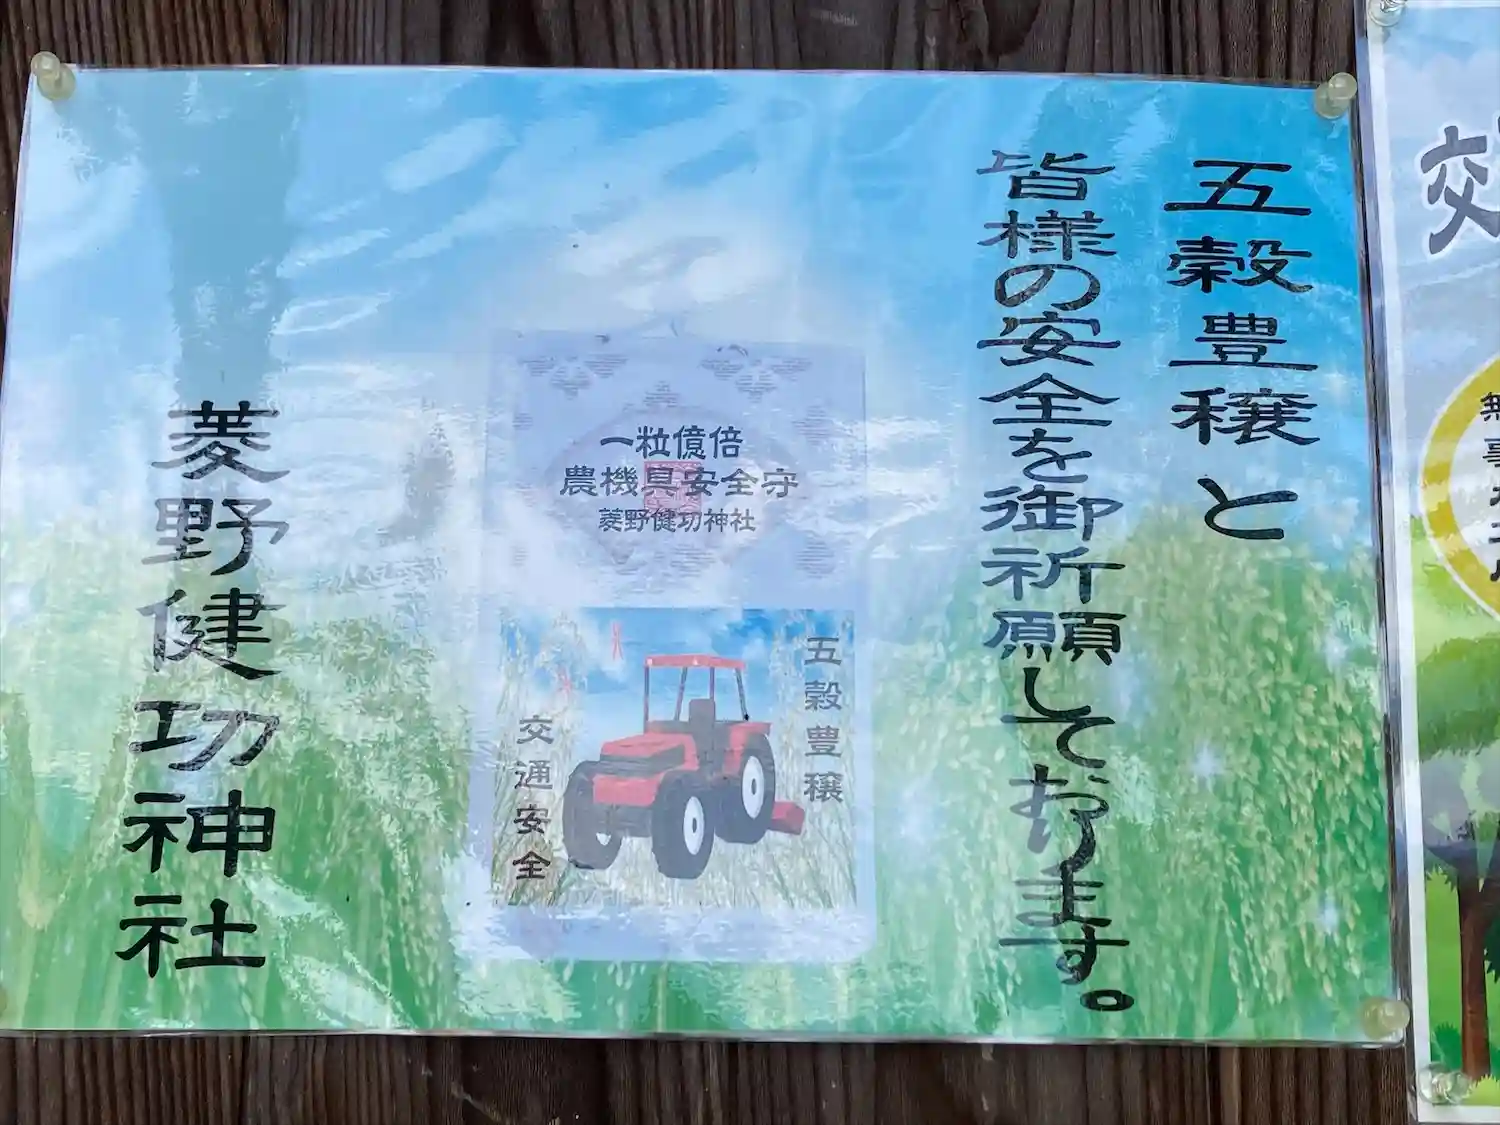 五穀豊穣と
皆様の安全を御祈願しております。
一粒億倍
農機具安全守
菱野健功神社
五穀豊穣
交通安全
菱野健功神社
交
無
事